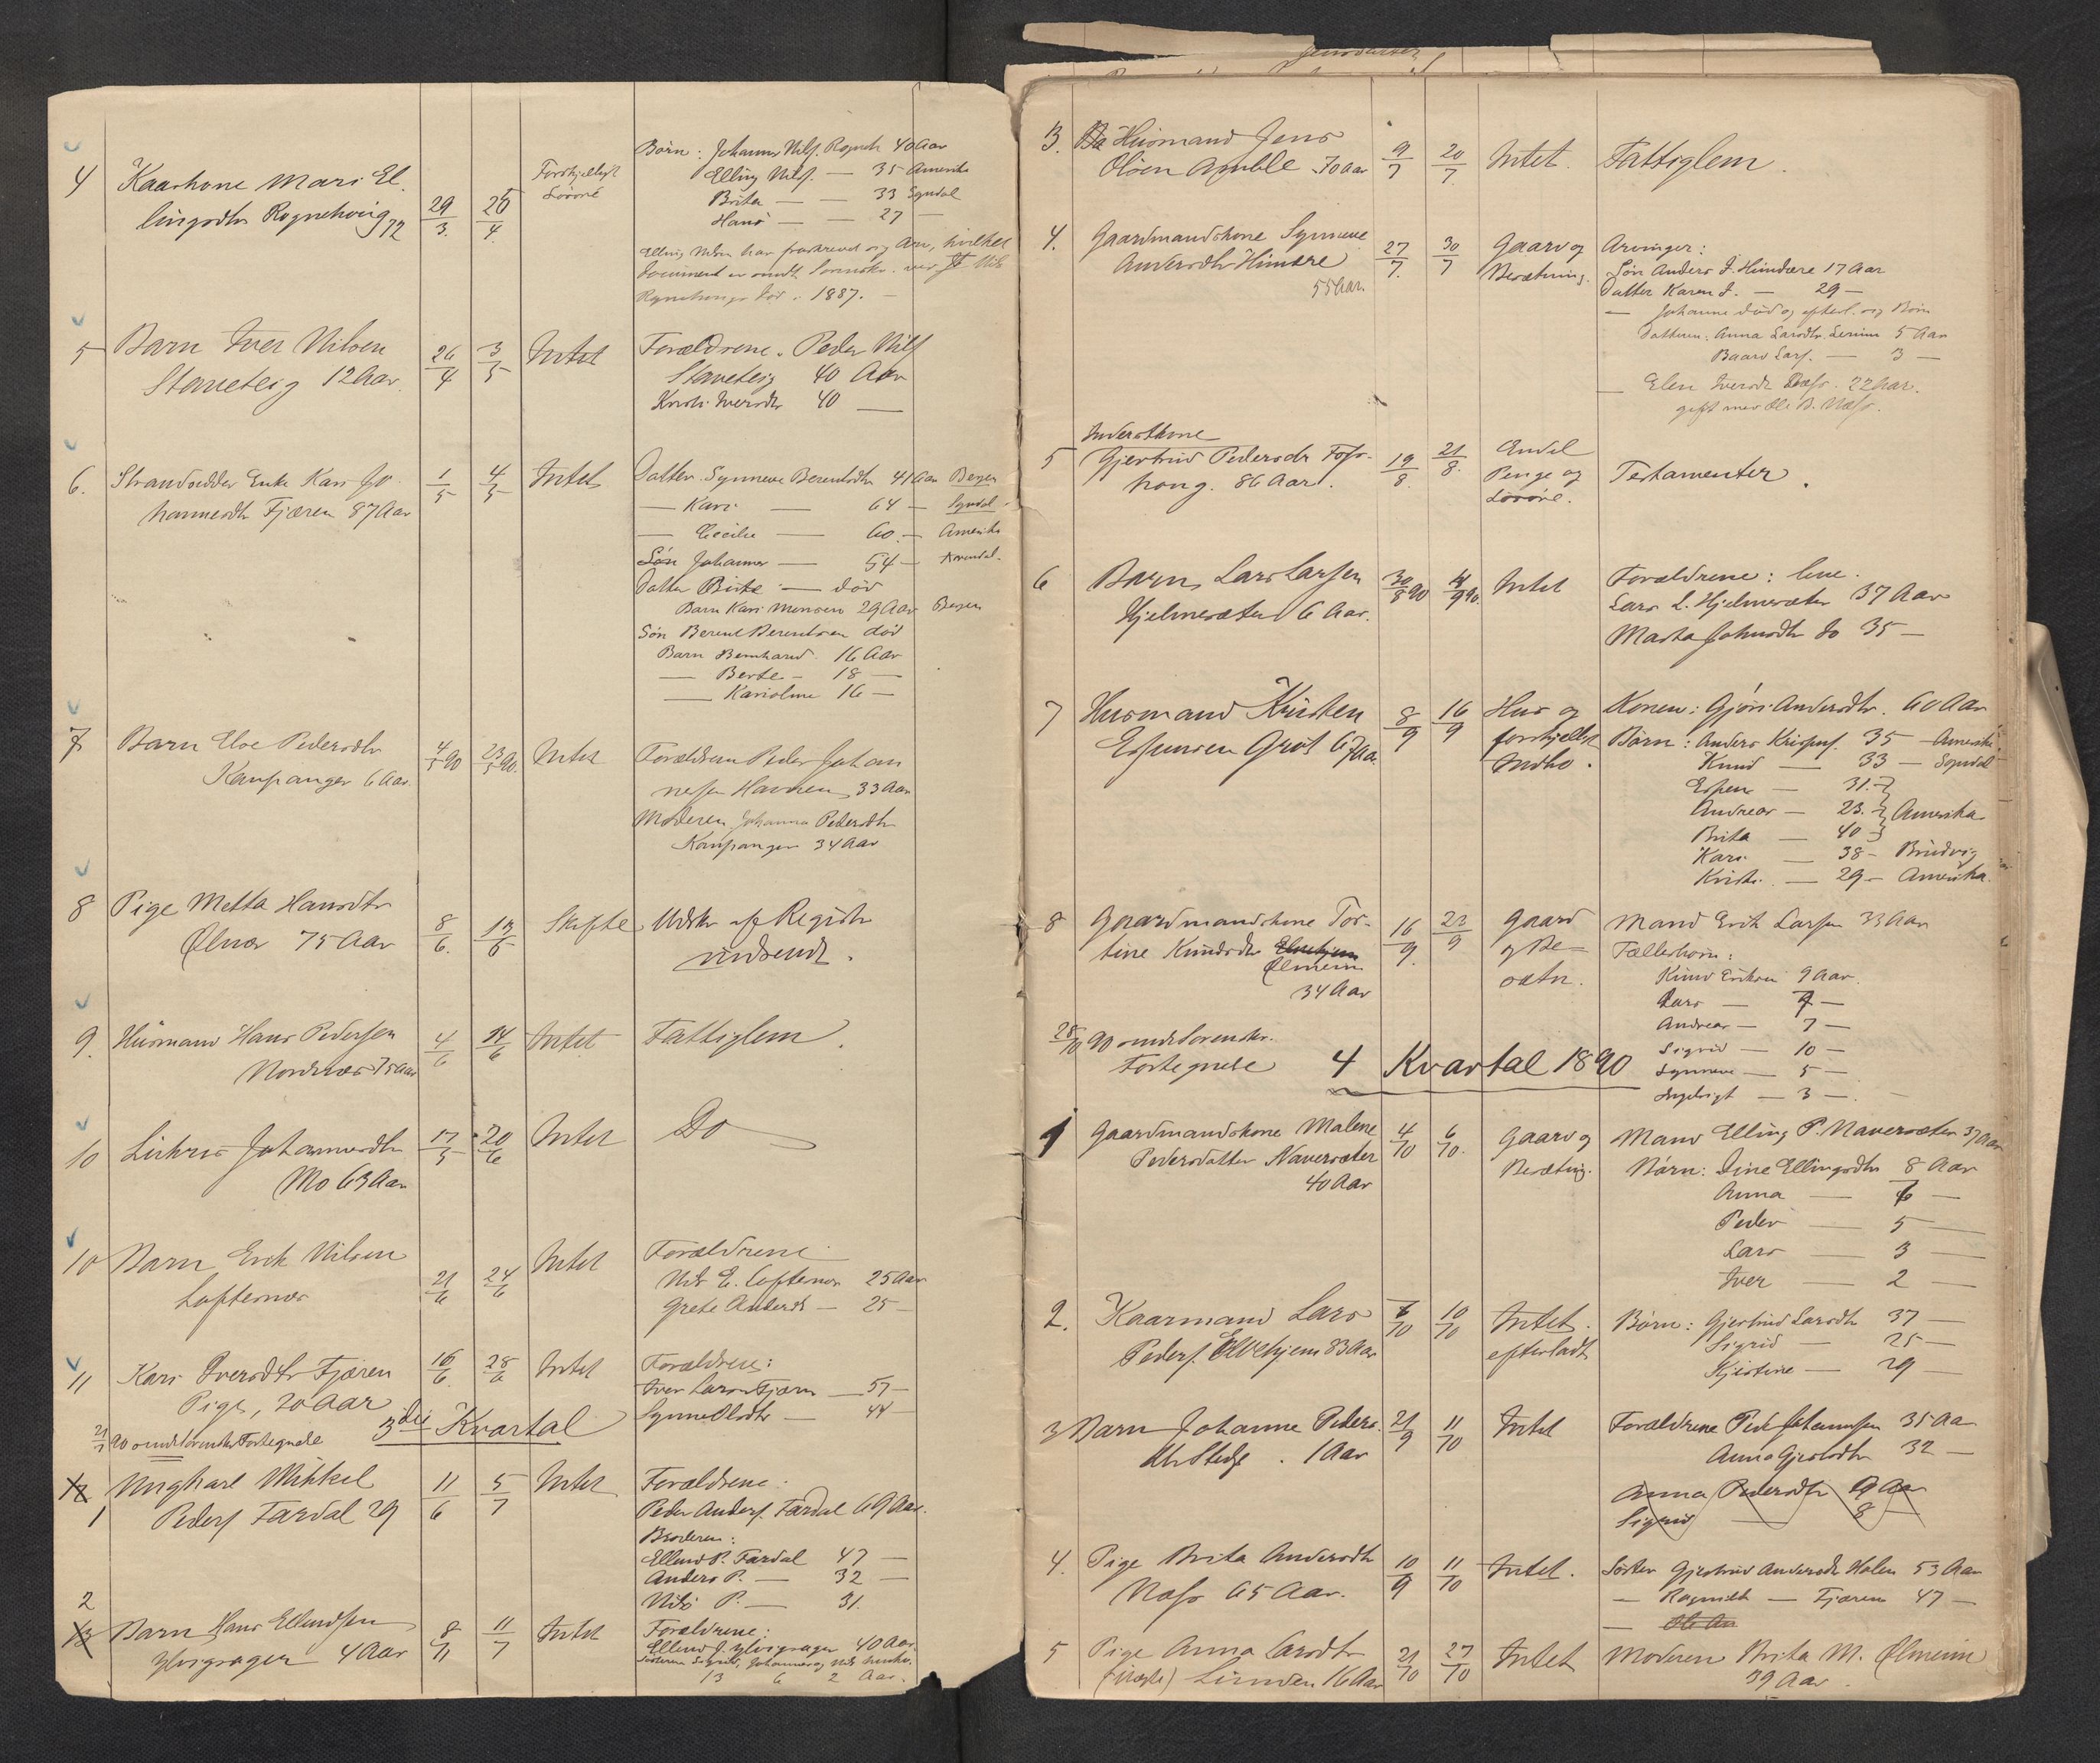 4 Kaarkone Mari El
lingsdtr Rognehaug 72
29/3 25/4
Forskjelligt
Løsøre
Børn: Johannes Nils. Rogneh 40 Aar
Elling Nils. — 35 Amerika
Brita — — 33 Sogndal
Hans — — 27 —
Elling Nilsen har fraskrevet sig Arv, hvilket
Document er sendt Sorenskr. ved
død i 1887. —
5 Barn Iver Nilsen
Stoveteig 12 Aar.
26/4 3/5 Intet
Forældrene. Peder Nils
Stoveteig 40 Aar
Kristi Iversdtr 40 —
6. Strandsidder Enke Kari Jo
hannesdtr Fjæren 87 Aar
1/5 4/5 Intet
Datter Synneve Berentsdtr 41 Aar Bergen
— Kari — 64 — Sogndal
— Cecilie — 60 — Amerika
Søn Johannes — 54 —
Datter Brite — død
Barn Kari Monsen 29 Aar Bergen
Søn Berent Berentsen død
Barn Bernhard 16 Aar
— Berte — 18 —
— Karoline 16 —
7 Barn Else Pedersdtr
Kaupanger 6 Aar.
4/5 90 23/5 90. Intet
Forældrene Peder Johan
nesen Havnen 33 Aar
Moderen Johanna Pedersdtr
Kaupanger 34 Aar
8 Pige Metta Hansdtr
Ølnes 75 Aar
8/6. 13/6 Skifte
Udskr. af Registr
indsendt.
9. Husmand Hans Pedersen
Nordnæs 75 Aar
4/6 14/6 Intet Fattiglem.
10 Johannesdtr
Mo 63 Aar
17/5 20/6 Intet Do
10 Barn Erik Nilsen
Loftesnes
21/6 24/6 Intet
Forældrene
Nils E. Loftesnes 25 Aar
Grete Andersd — 25 —
11 Kari Iversdtr Fjæren
Pige, 20 Aar
16/6 28/6 Intet
Forældrene:
Iver Larsen Fjæren — 57 —
Synne Olsdtr — 44 —
21/7 90 sendt Sorenskr Fortegnelse
3die Kvartal
12 1 Ungkarl Mikkel
Peders Fardal 29
11/6 5/7 Intet
Forældrene:
Peder Anders. Fardal 69 Aar.
Broderen:
Ellend P. Fardal 47 —
Anders P. — 32 —
Nils P. — 31.
2
13 Barn Hans Ellendsen
Ylvisaager 4 Aar
8/7 11/7 Intet
Forældrene:
Ellend J. Ylvisaager 40 Aar.
Søsteren Sigrid, Johannes og Nils
13 6 2 Aar.
3. Husmand Jens
Olsen Amble 70 Aar
9/7 20/7. Intet. Fattiglem.
4. Gaardmandskone Synneve
Andersdtr Himdre
55 Aar.
27/7. 30/7
Gaard og
Besætning.
Arvinger:
Søn Anders J. Himdre 17 Aar
Datter Karen J. — 29 —
— Johanne død og efterl. sig Børn
Datteren Anna Larsdtr 5 Aar
Baard Lars. — 3 —
— Elen Iversdt Næss. 22 Aar.
gift med Ole B. Næss.
5 Inderstkone
Gjertrud Pedersdr Foss-
haug. 86 Aar.
19/8. 21/8.
Endel
Penge og
Løsøre.
Testamenter.
6 Barn Lars Larsen
Hjelmesæter 6 Aar.
30/8 90 4/9 90. Intet
Forældrene: leve.
Lars L. Hjelmesæter 37 Aar
Marta Johnsdtr do 35 —
7 Husmand Kristen
Espensen Grøt 67 Aar.
8/9 16/9
Hus og
forskjelligt
Indbo.
Konen: Gjøri Andersdtr. 60 Aar
Børn: Anders Kristens. 35 — Amerika
Knud — 33 — Sogndal
Espen — 31.
Andreas — 23. Amerika
Brita — 40
Kari — 38 —
Kristi — 29 — Amerika
8 Gaardmandskone Tor-
tine Knudsdtr
Ølmeim
34 Aar
16/9. 23/9
Gaard
og Be-
sætn.
Mand Erik Larsen 33 Aar
Fællesbørn:
Knud Eriksen 9 Aar.
Lars — 9 —
Andreas — 7 —
Sigrid — 10 —
Synneve — 5 —
Ingebrigt — 3 —
28/10 90 sendt Sorenskr.
Fortegnelse
4 Kvartal 1890
1 Gaardmandskone Malene
Pedersdatter Navarsæter
40 Aar
4/10 6/10.
Gaard og
Besætnig.
Mand Elling P. Navarsæter 37 Aar
Børn: Sine Ellingsdtr 8 Aar
Anna — 6 —
Peder — 5 —
Lars — 3 —
Iver — 2 —
2. Kaarmand Lars
Peders. Elvehjem 83 Aar
7/10 10/10
Intet.
efterladt
Børn: Gjertrud Larsdtr 37 —
Sigrid — 25 —
Kjestine — 29 —
3 Barn Johanne Peders-
dtr Stedje. 1 Aar
21/9 11/10 Intet
Forældrene Peder Johannesen 35 Aar
Anna Gjertsdtr 32 —
Anna Pedersdtr 9 Aar
Sigrid — 8 —
4. Pige Brita Andersdtr
Næss 65 Aar.
10/9 11/10 Intet.
Søster Gjertrud Andersdr Holen 53 Aar
— Ragnild — Fjæren 47 —
5 Pige Anna Larsdtr
(uægte) Linden 16 Aar
21/10 27/10 Intet
Moderen Brita M. Ølmeim
39 Aar.